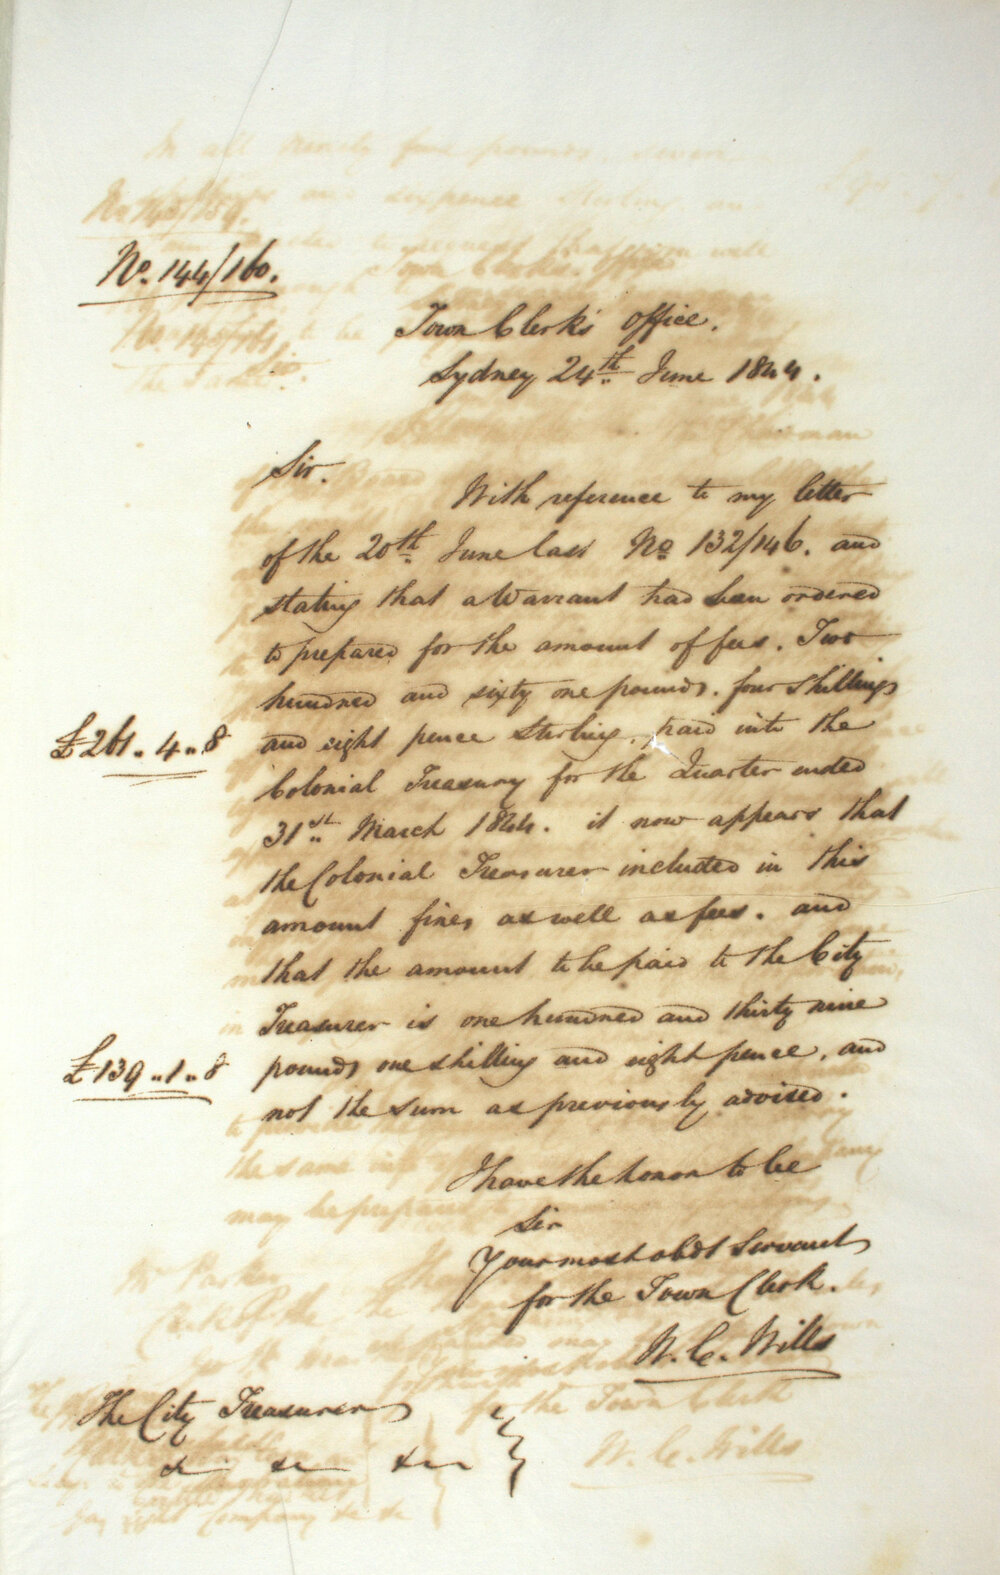 No. 144/160.
Town Clerk's Office.
Sydney 24th June 1844.
Sir.
With reference to my letter
of the 20th June last No 132/146. and
stating that a Warrant had been ordered
to prepared for the amount of fees. Two
hundred and sixty one pounds. four shillings
£261..4..8
and eight pence Sterling, paid into the
Colonial Treasury for the Quarter ended
31st March 1844. it now appears that
the Colonial Treasurer included in this
amount fines as well as fees. and
that the amount to be paid to the City
Treasurer is one hundred and thirty nine
£139..1..8
pounds one shilling and eight pence, and
not the sum as previously advised.
I have the honor to be
Sir
Your most obdt Servant
for the Town Clerk.
W. C. Wills
The City Treasurer
&c &c &c